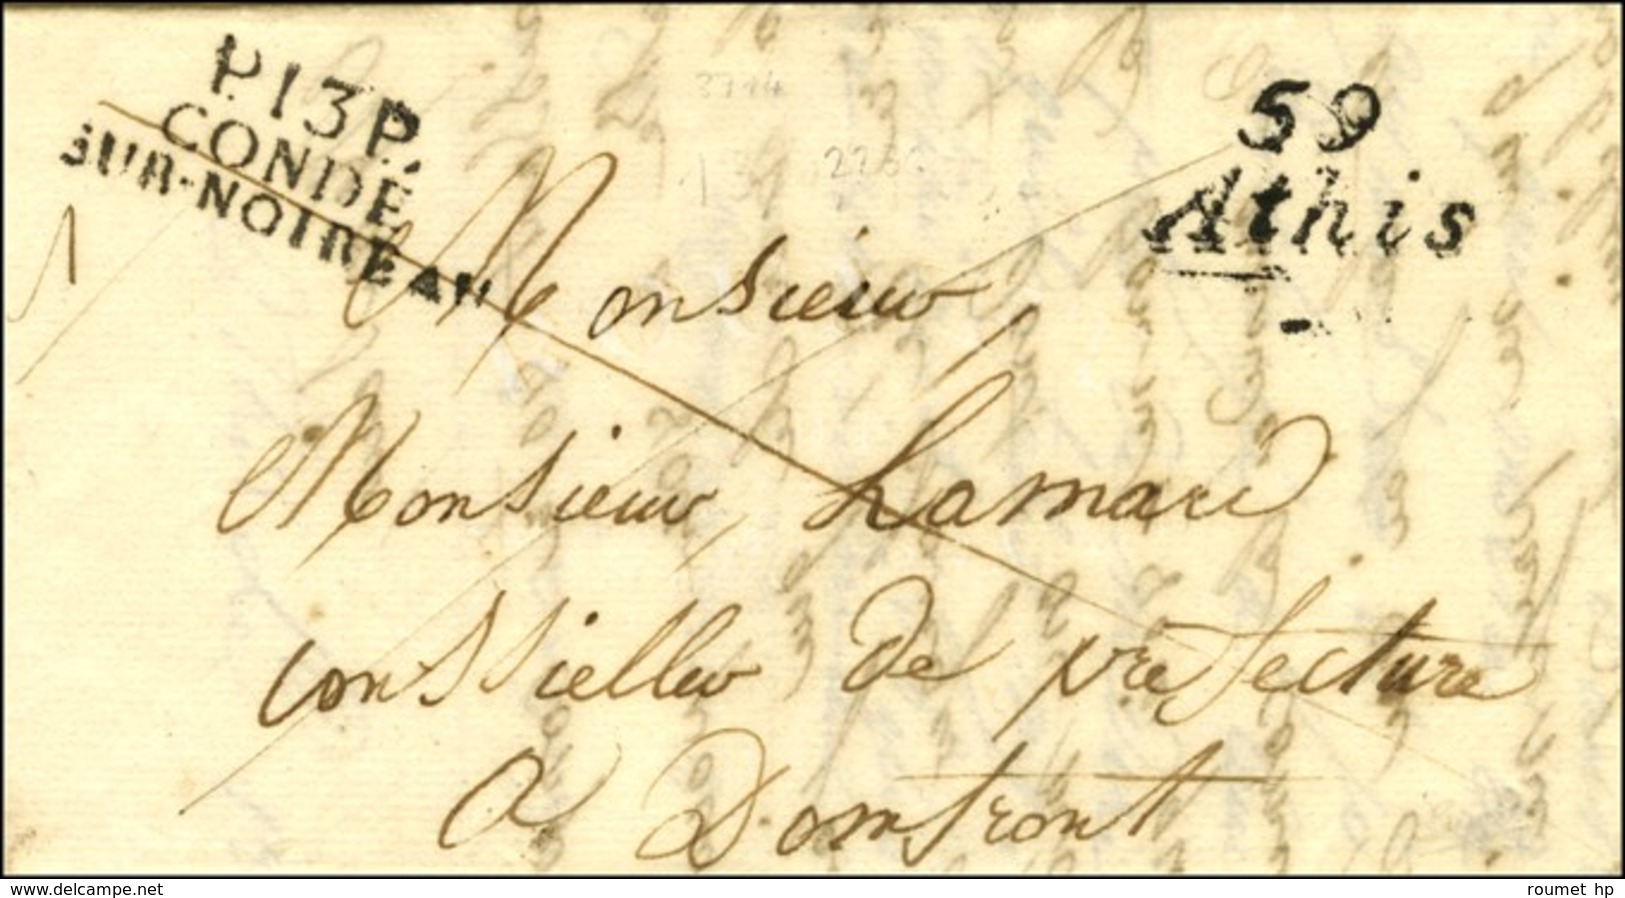 P.13.P.
CONDÉ
SUR-NOIREAU
59
Athis
3714
Monsieur
Monsieur Lamare
consieller de prefecture
a Domfront
www.delcampe.net
roumet hp